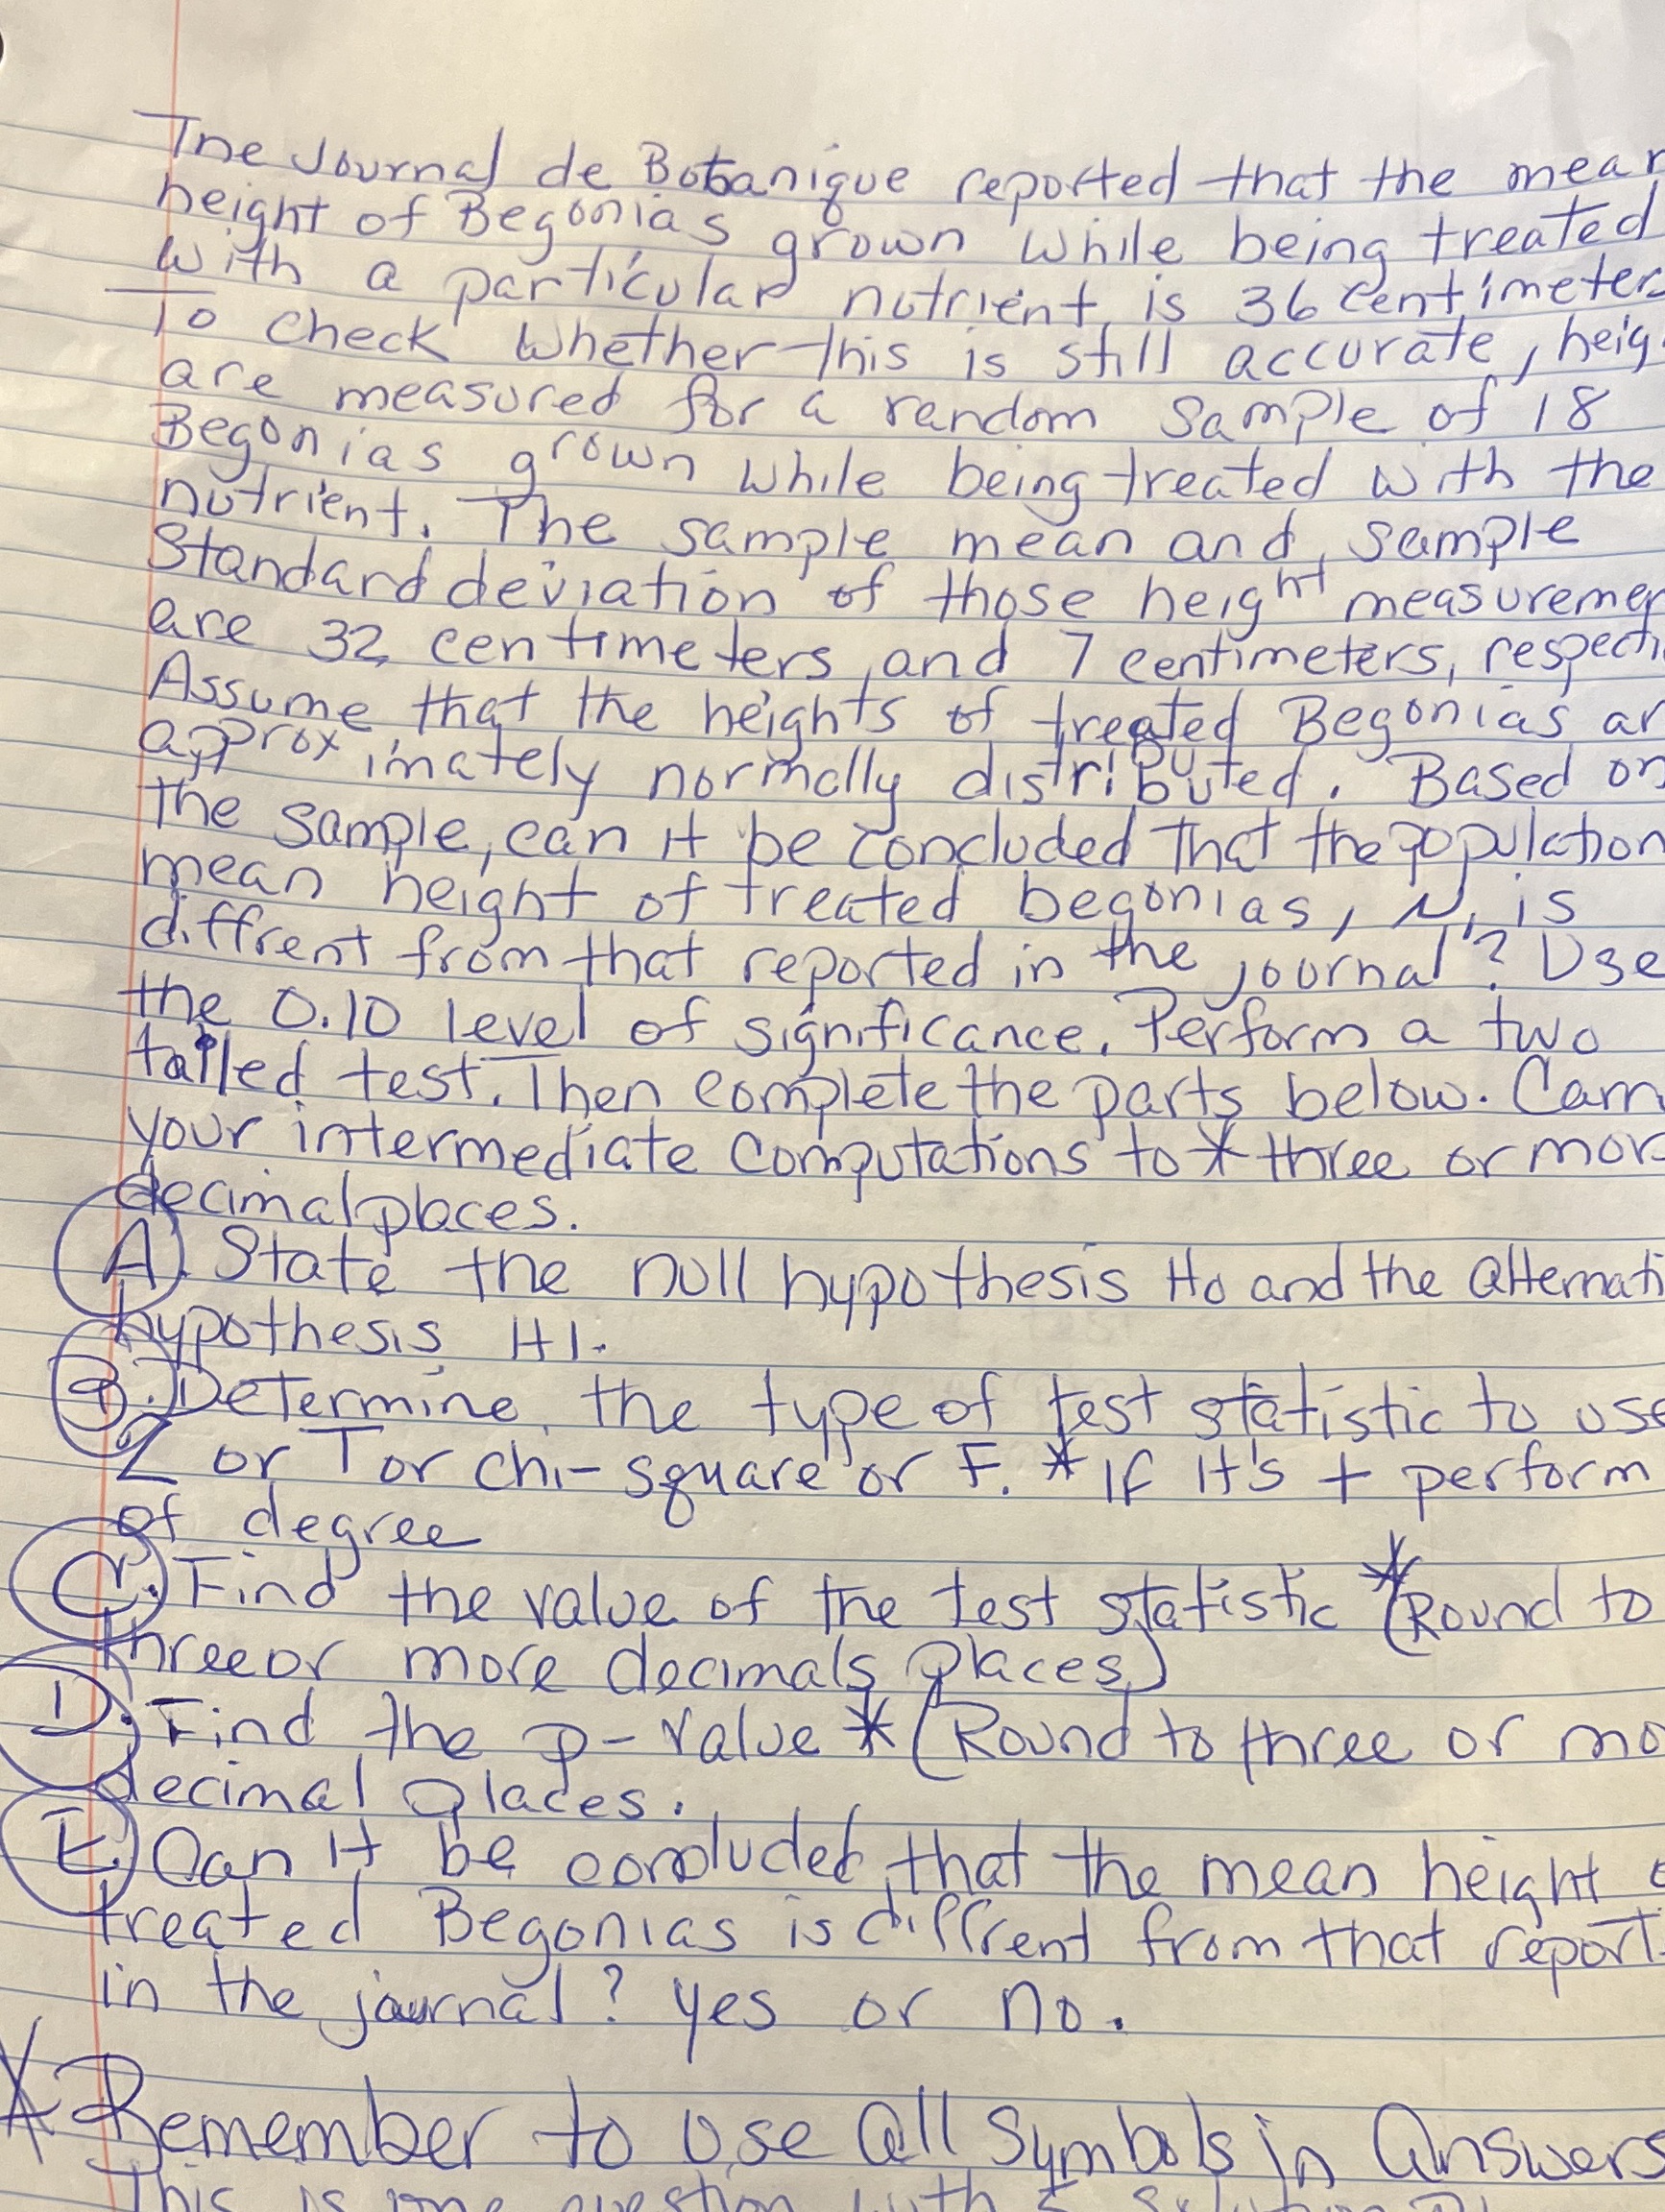 The Journal de Botanique reported that the mean
height of Begonias grown while being treated
with a particular nutrient is 36 centimeters
To check whether this is still accurate, heig
are measured for a random sample of 18
Begonias grown while being treated with the
nutrient. The sample mean and sample
Standard deviation of those height measuremen
are 32 centimeters and 7 centimeters, respecti
Assume that the heights of treated Begonias ar
approximately normally distributed. Based on
the sample, can it be concluded that the population
mean height of treated begonias, μ, is
diffrent from that reported in the journal? Use
the 0.10 level of significance. Perform a two
tailed test. Then complete the parts below. Carr
your intermediate computations to * three or more
decimal places.
A. State the null hypothesis Ho and the alternati
hypothesis H1.
B. Determine the type of test statistic to use
Z or T or chi-square or F. * If it's t perform
of degree
C. Find the value of the test statistic * (Round to
three or more decimals places)
D. Find the p-value * (Round to three or mo
decimal places.
E. Can it be concluded that the mean height o
treated Begonias is diffrent from that report
in the journal? yes or no.
* Remember to use all symbols in answers
This is one question with 5